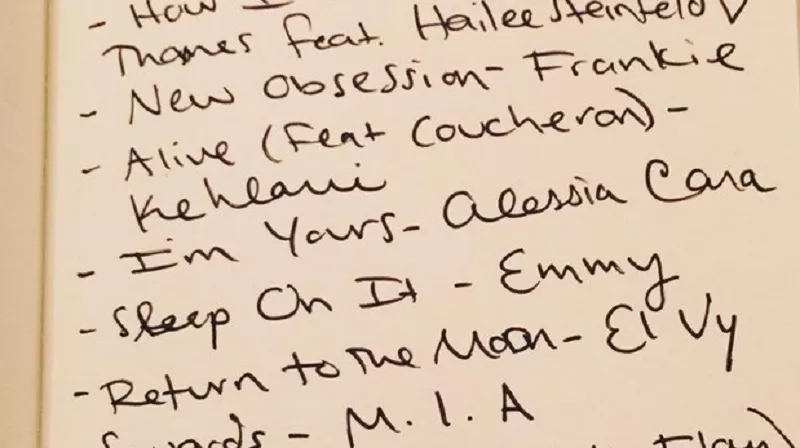 - How I
Thames feat. Hailee Steinfeld V
- New Obsession - Frankie
- Alive (Feat Coucheron) -
Kehlani
- I'm Yours - Alessia Cara
- Sleep On It - Emmy
- Return to the Moon - El Vy
M. I. A